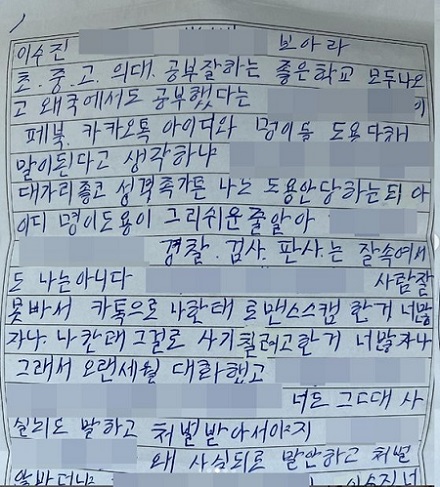 이수진 보아라
초.중.고.의대.공부잘하는 좋은학교 모두나오
고 왜국에서도 공부했다는 이
페북.카카오톡 아이디와 명이를 도용다해
말이된다고 생각하냐
대가리좋고 성격족가튼 나는 도용안당하는듸 아
이디 명이도용이 그리쉬운줄알아
경찰.검사.판사.는 잘속여서
도 나는아니다 사람잘
못바서 카톡으로 나한태 로맨스스캠 한거 너맞
자나. 나한태 그걸로 사기칠려고한거 너맞자나
그래서 오랜세월 대화했고
너도 그 대 사
실되로 말하고 처벌받아서야지
왜 사실되로 말안하고 처벌
안받더냐 이수진 너